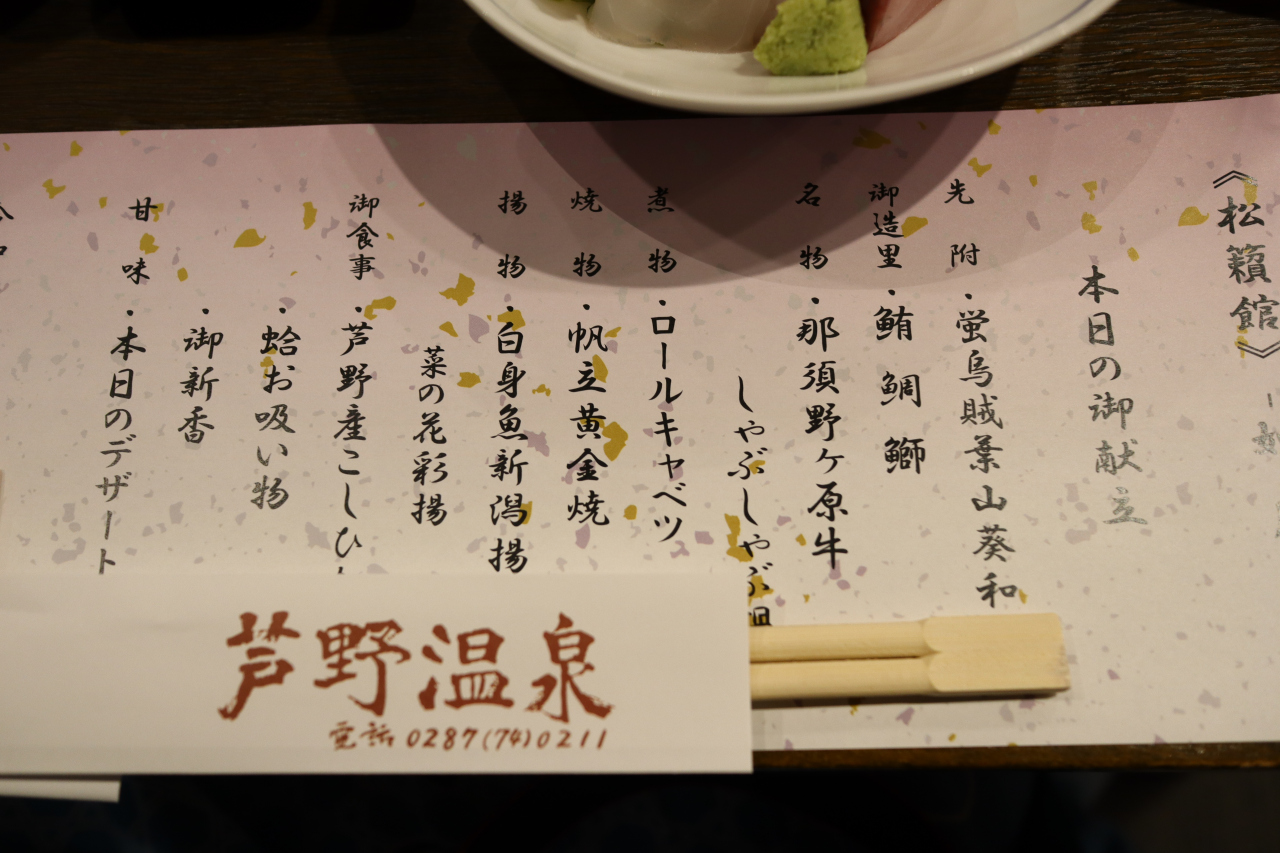 《松籟館》
本日の御献立
先附・蛍烏賊葉山葵和
御造里・鮪 鯛 鰤
名物・那須野ヶ原牛
しゃぶしゃぶ
煮物・ロールキャベツ
焼物・帆立黄金焼
揚物・白身魚新潟揚
菜の花彩揚
御食事・芦野産こしひ
蛤お吸い物
・御新香
甘味・本日のデザート
芦野温泉
電話 0287(74)0211